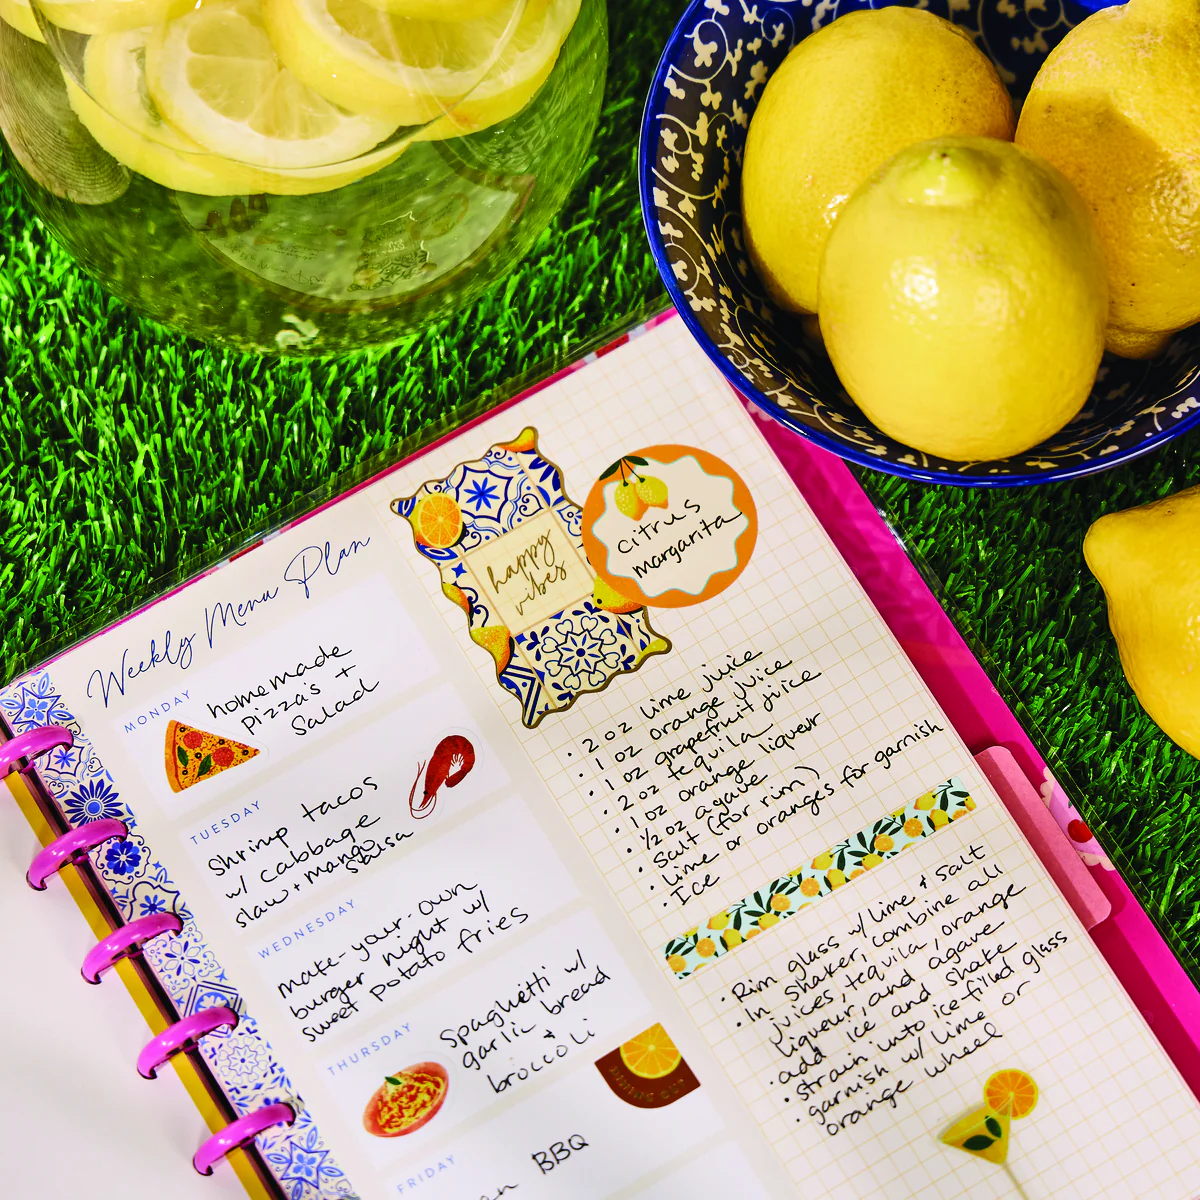 Weekly Menu Plan
MONDAY
homemade
pizza's +
salad
TUESDAY
Shrimp tacos
w/ cabbage
slaw + mango
salsa
WEDNESDAY
make-your-own
burger night w/
sweet potato fries
THURSDAY
Spaghetti w/
garlic bread
&
broccoli
FRIDAY
BBQ
happy
vibes
citrus
margarita
• 2 oz lime juice
• 1 oz orange juice
• 1 oz grapefruit juice
• 2 oz tequila
• 1 oz orange liqueur
• 1/2 oz agave
• Salt (for rim)
• lime or oranges for garnish
• Ice
• Rim glass w/ lime & salt
• In shaker, combine all
juices, tequila, orange
liqueur, and agave
• add ice and shake
• strain into ice filled glass
• garnish w/ lime or
orange wheel